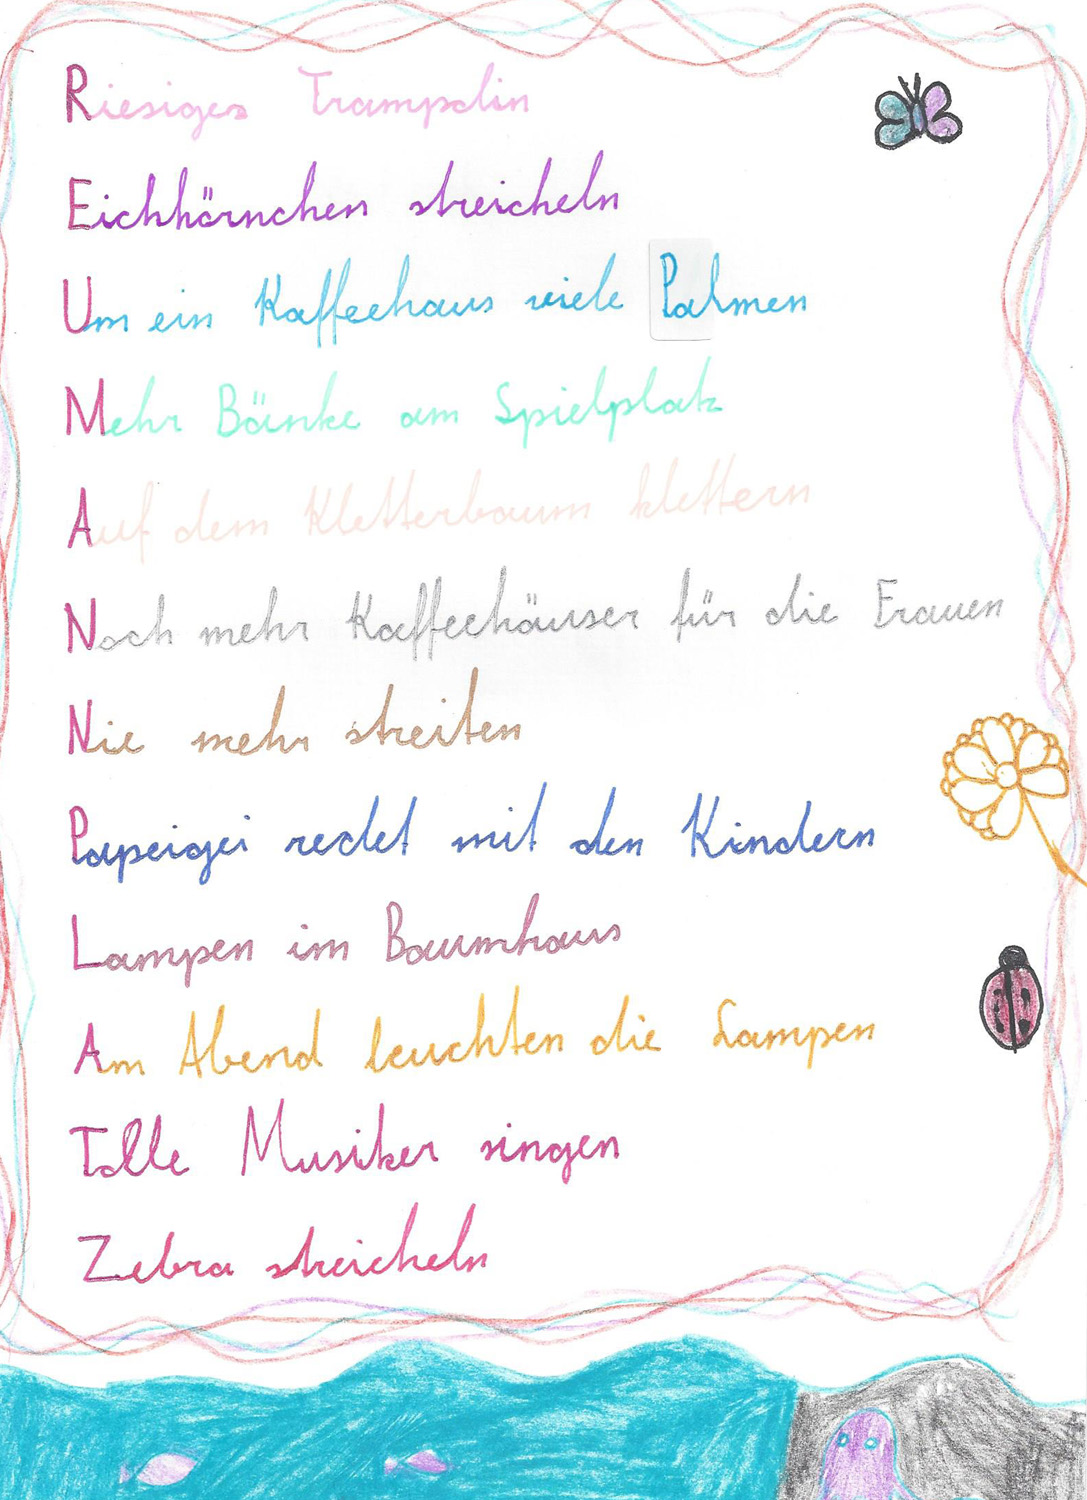 Riesiges Trampolin
Eichhörnchen streicheln
Um ein Kaffeehaus viele Palmen
Mehr Bänke am Spielplatz
Auf dem Kletterbaum klettern
Noch mehr Kaffeehäuser für die Frauen
Nie mehr streiten
Papeigei redet mit den Kindern
Lampen im Baumhaus
Am Abend leuchten die Lampen
Tolle Musiker singen
Zebra streicheln